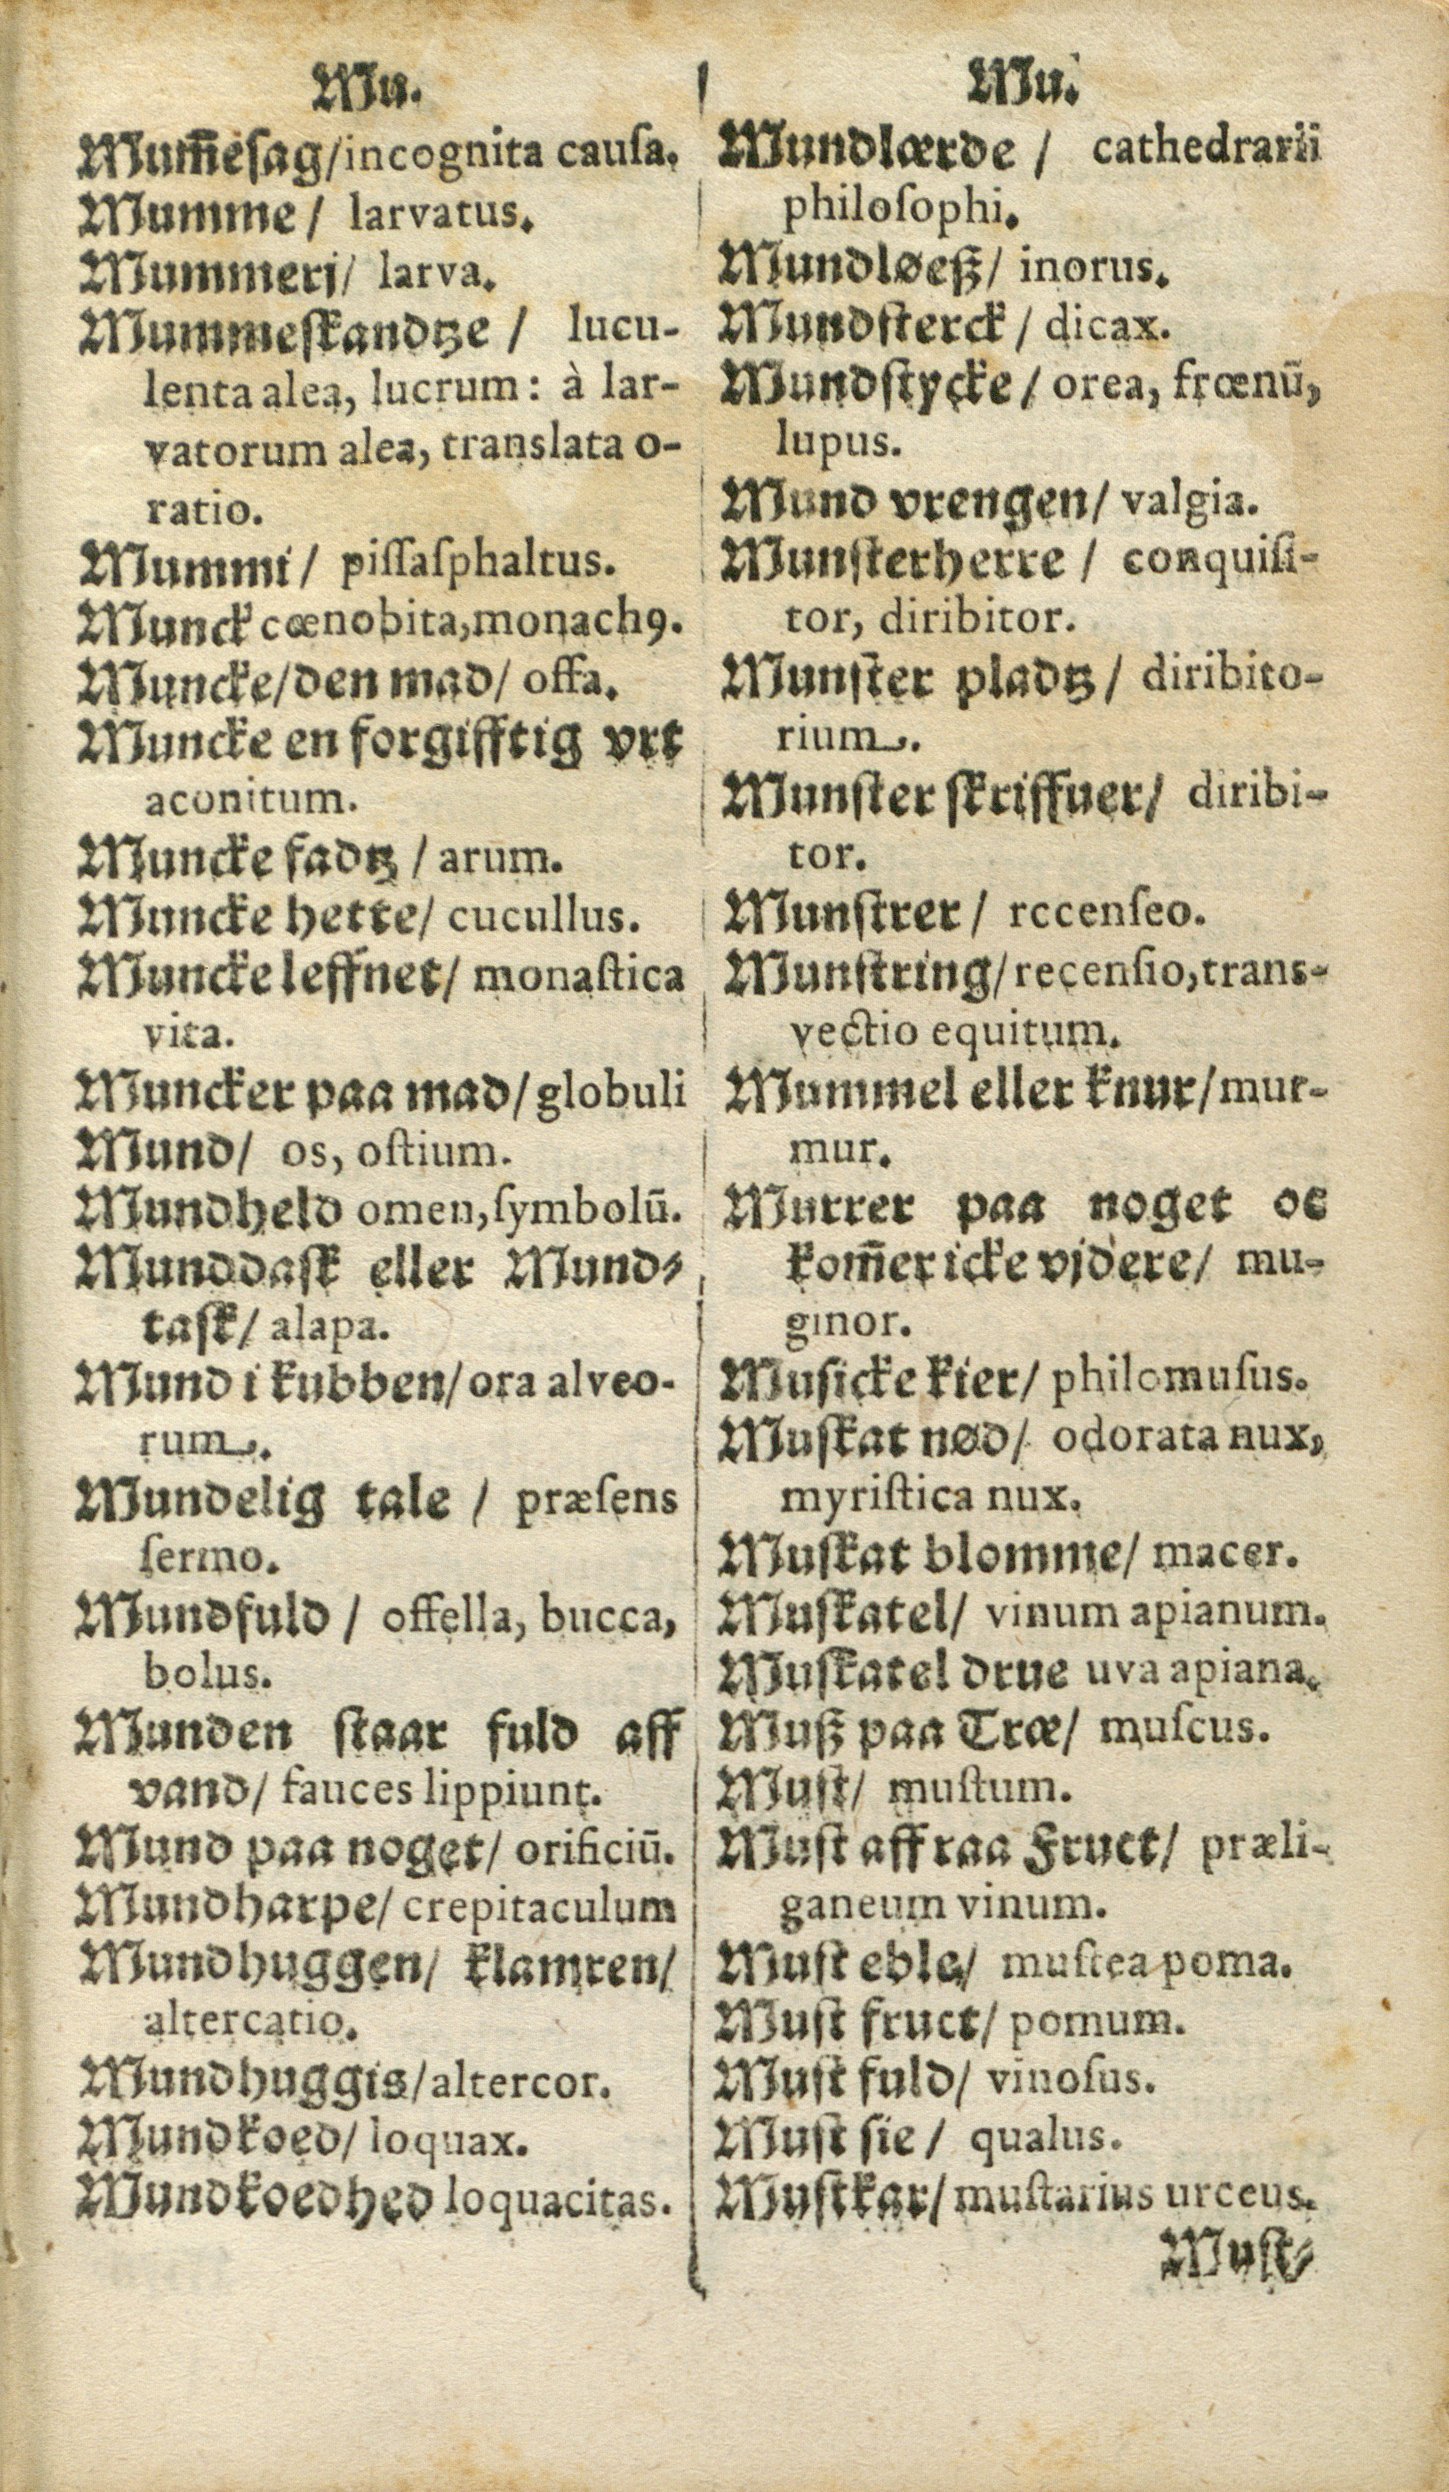 Mu.
Mum̃esag/incognita cauſa.
Mumme/ larvatus.
Mummerj/ larva.
Mummeſkandtze / lucu-
lenta alea, lucrum: à lar-
vatorum alea, translata o-
ratio.
Mummi/ piſſaſphaltus.
Munck cœnobita,monachꝰ.
Muncke/den mad/ offa.
Muncke en forgifftig vrt
aconitum.
Muncke fadtz / arum.
Muncke hette/ cucullus.
Muncke leffnet/ monaſtica
vita.
Muncker paa mad/ globuli
Mund/ os, oſtium.
Mundheld omen,ſymbolū.
Munddaſk eller Mund⸗
taſk/ alapa.
Mund i kubben/ora alveo-
rum.
Mundelig tale / præſens
ſermo.
Mundfuld / offella, bucca,
bolus.
Munden ſtaar fuld aff
vand/ fauces lippiunt.
Mund paa noget/ orificiū.
Mundharpe/ crepitaculum
Mundhuggen/ klamren/
altercatio.
Mundhuggis/altercor.
Mundkoed/ loquax.
Mundkoedhed loquacitas.
Mu.
Mundlærde / cathedrarii
philoſophi.
Mundløeß/ inorus.
Mundſterck / dicax.
Mundſtycke / orea, frœnū,
lupus.
Mund vrengen/ valgia.
Munſterherre / conquiſi-
tor, diribitor.
Munſter pladtz / diribito-
rium.
Munſter ſkriffuer/ diribi-
tor.
Munſtrer / rccenſeo.
Munſtring/recenſio,trans-
vectio equitum.
Mummel eller knur/mur-
mur.
Murrer paa noget oc
kom̃er icke vjdere/ mu-
ginor.
Muſicke kier/ philomuſus.
Muſkat nød/ odorata nux,
myriſtica nux.
Muſkat blomme/ macer.
Muſkatel/ vinum apianum.
Muſkatel drue uva apiana.
Muß paa Træ/ muſcus.
Muſt/ muſtum.
Muſt aff raa Fruct/ præli-
ganeum vinum.
Muſt eble/ muſtea poma.
Muſt fruct/ pomum.
Muſt fuld/ vinoſus.
Muſt ſie / qualus.
Muſtkar/ muſtarius urceus.
Muſt⸗